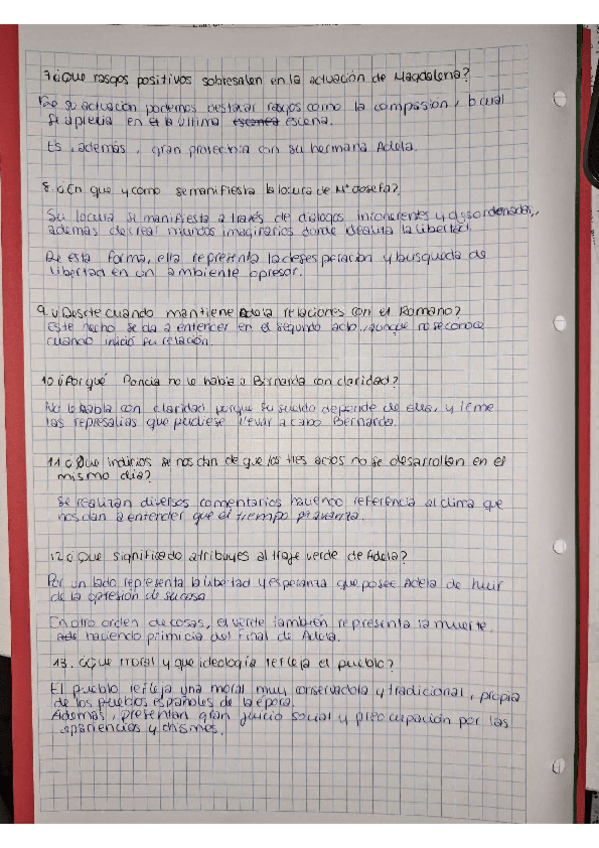 7. ¿Que rasgos positivos sobresalen en la actuación de Magdalena?
De su actuación podemos destacar rasgos como la compasión, lo cual
se aprecia en la última escena.
Es, además, gran protectora con su hermana Adela.
8. ¿En que y como se manifiesta la locura de Mª Josefa?
Su locura se manifiesta a través de diálogos incoherentes y desordenados,
además de crear mundos imaginarios donde disfruta la libertad.
De esta forma, ella representa la desesperación y búsqueda de
libertad en un ambiente opresor.
9. ¿Desde cuando mantiene Adela relaciones con el Romano?
Este hecho se da a entender en el segundo acto, aunque no se conoce
cuando inició su relación.
10. ¿Porqué Poncia no le habla a Bernarda con claridad?
No le habla con claridad porque su sueldo depende de ella, y teme
las represalias que pudiese llevar a cabo Bernarda.
11. ¿Que indicios se nos dan de que los tres actos no se desarrollan en el
mismo día?
Se realizan diversos comentarios haciendo referencia al clima que
nos dan a entender que el tiempo avanza.
12. ¿Que significado atribuyes al traje verde de Adela?
Por un lado representa la libertad y esperanza que posee Adela de huir
de la opresión de su casa
En otro orden de cosas, el verde también representa la muerte,
haciendo primicia del final de Adela.
13. ¿Que moral y que ideología refleja el pueblo?
El pueblo refleja una moral muy conservadora y tradicional, propia
de los pueblos españoles de la época.
Además, presentan gran juicio social y preocupación por las
apariencias y chismes.